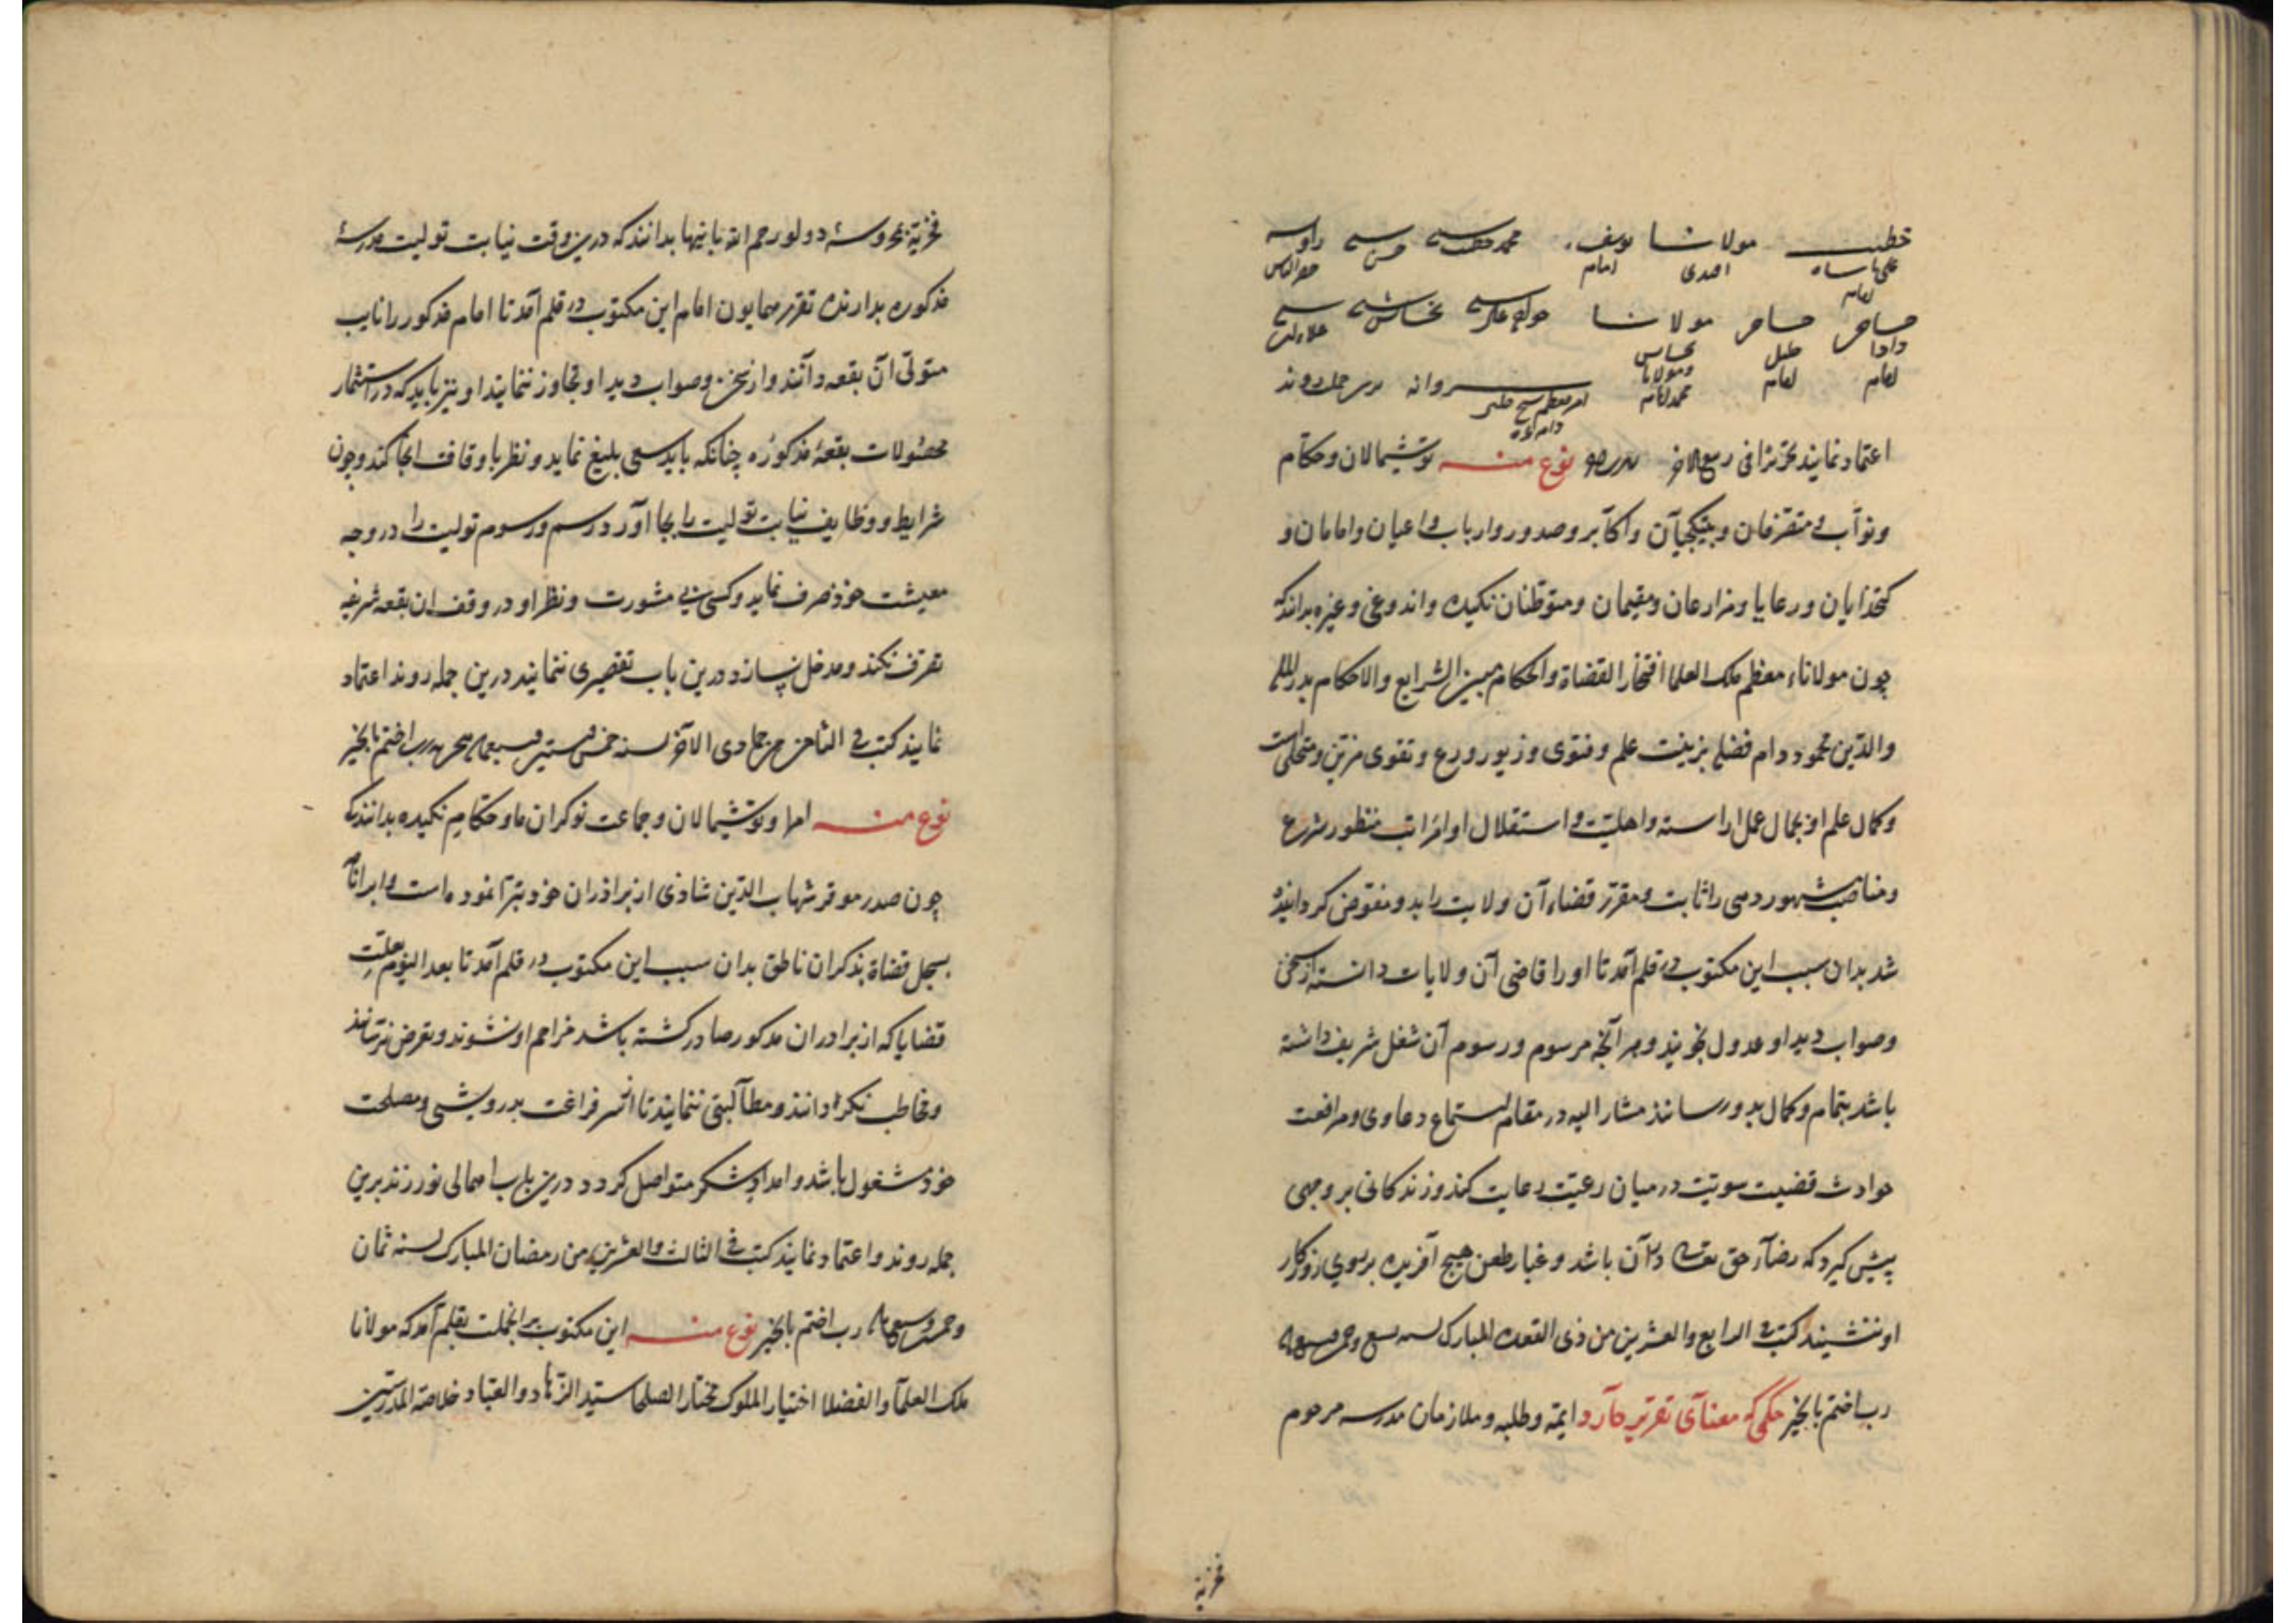 خطیب مولانا یوسف محمد
علی شاه احمدی امام
امام
صاحب صاحب مولانا
دادا خلیل
امام امام محمد امام
روانه برین جمله روند
اعتماد نمایند تحریرا فی ربیع الاخر نوع منه توشیمالان و حکام
و نواب و متصرفان و بیتکچیان و اکابر و صدور و ارباب و اعیان و امامان و
کتخدایان و رعایا و مزارعان و مقیمان و متوطنان نکیده و اندوغی و غیره بدانند که
چون مولاناء معظم ملک العلما افتخار القضاة والحکام ممیز الشرایع والاحکام بدر المله
والدین محمود دام فضله بزینت علم و فتوی و زیور ورع و تقوی مزین و متحلی است
و کمال علم او بجمال عمل اراسته و اهلیت و استقلال او
و مناصب شهور دمی را ثابت و مقرر قضاء آن ولایت را بدو مفوض کردانیده
شد بدان سبب این مکتوب در قلم آمد تا او را قاضی آن ولایات دانسته از سخن
و صواب دید او عدول نجویند و هر آنچه مرسوم و رسوم آن شغل شریف داشته
باشد بتمام و کمال بدو رسانند مشار الیه در مقام استماع دعاوی و مرافعت
حوادث قضیت سویت در میان رعیت رعایت کند و زندکانی بر وجهی
پیش کیرد که رضاء حق تعالی در آن باشد و غبار طعن هیچ آفریده بر روی روزکار
او ننشیند کتب فی الرابع والعشرین من ذی القعده المبارک لسنه
رب اختم بالخیر حکمی که معنای تقریر دارد ایمه و طلبه و ملازمان مدرسه مرحوم
فخریه
فخریة محروسهٔ دولو رحم الله بانیها بدانند که درین وقت نیابت تولیت مدرسهٔ
مذکوره بدارنده تقریر همایون امام این مکتوب در قلم آمد تا امام مذکور را نایب
متولی آن بقعه دانند و از سخن و صواب دید او تجاوز ننمایند او نیز باید که در استثمار
محصولات بقعهٔ مذکوره چنانکه باید سعی بلیغ نماید و نظر باوقاف انجا کند و چون
شرایط و وظایف نیابت تولیت را بجا آورد رسم و رسوم تولیت را در وجه
معیشت خود صرف نماید و کسی بی مشورت و نظر او در وقف ان بقعه شریفه
تصرف نکند و مدخل نسازد درین باب تقصیری ننمایند درین جمله روند اعتماد
نمایند کتب فی الثامن من جمادی الاخر لسنه خمس رب اختم بالخیر
نوع منه امرا و توشیمالان و جماعت نوکران ما و حکام نکیده بدانند که
چون صدر موقر شهاب الدین شاذی از براذران خود تبرا نموده است و ابرا نامه
بسجل قضاة بذکران ناطق بدان سبب این مکتوب در قلم آمد تا بعد الیوم بعلت
قضایا که از برادران مذکور صادر کشته باشد مزاحم او نشوند و تعرض نرسانند
و مخاطب نکردانند و مطالبتی ننمایند تا از سر فراغت بدرویشی و مصلحت
خود مشغول باشد و امداد شکر متواصل کردد درین باب اهمالی نورزند برین
جمله روند و اعتماد نمایند کتب فی الثالث والعشرین من رمضان المبارک لسنه ثمان
و خمسین و سبعمایه رب اختم بالخیر نوع منه این مکتوب بر انجملت بقلم آمد که مولانا
ملک العلما والفضلا اختیار الملوک مختار الصلحا سید الزهاد والعباد خلاصة المدرسین